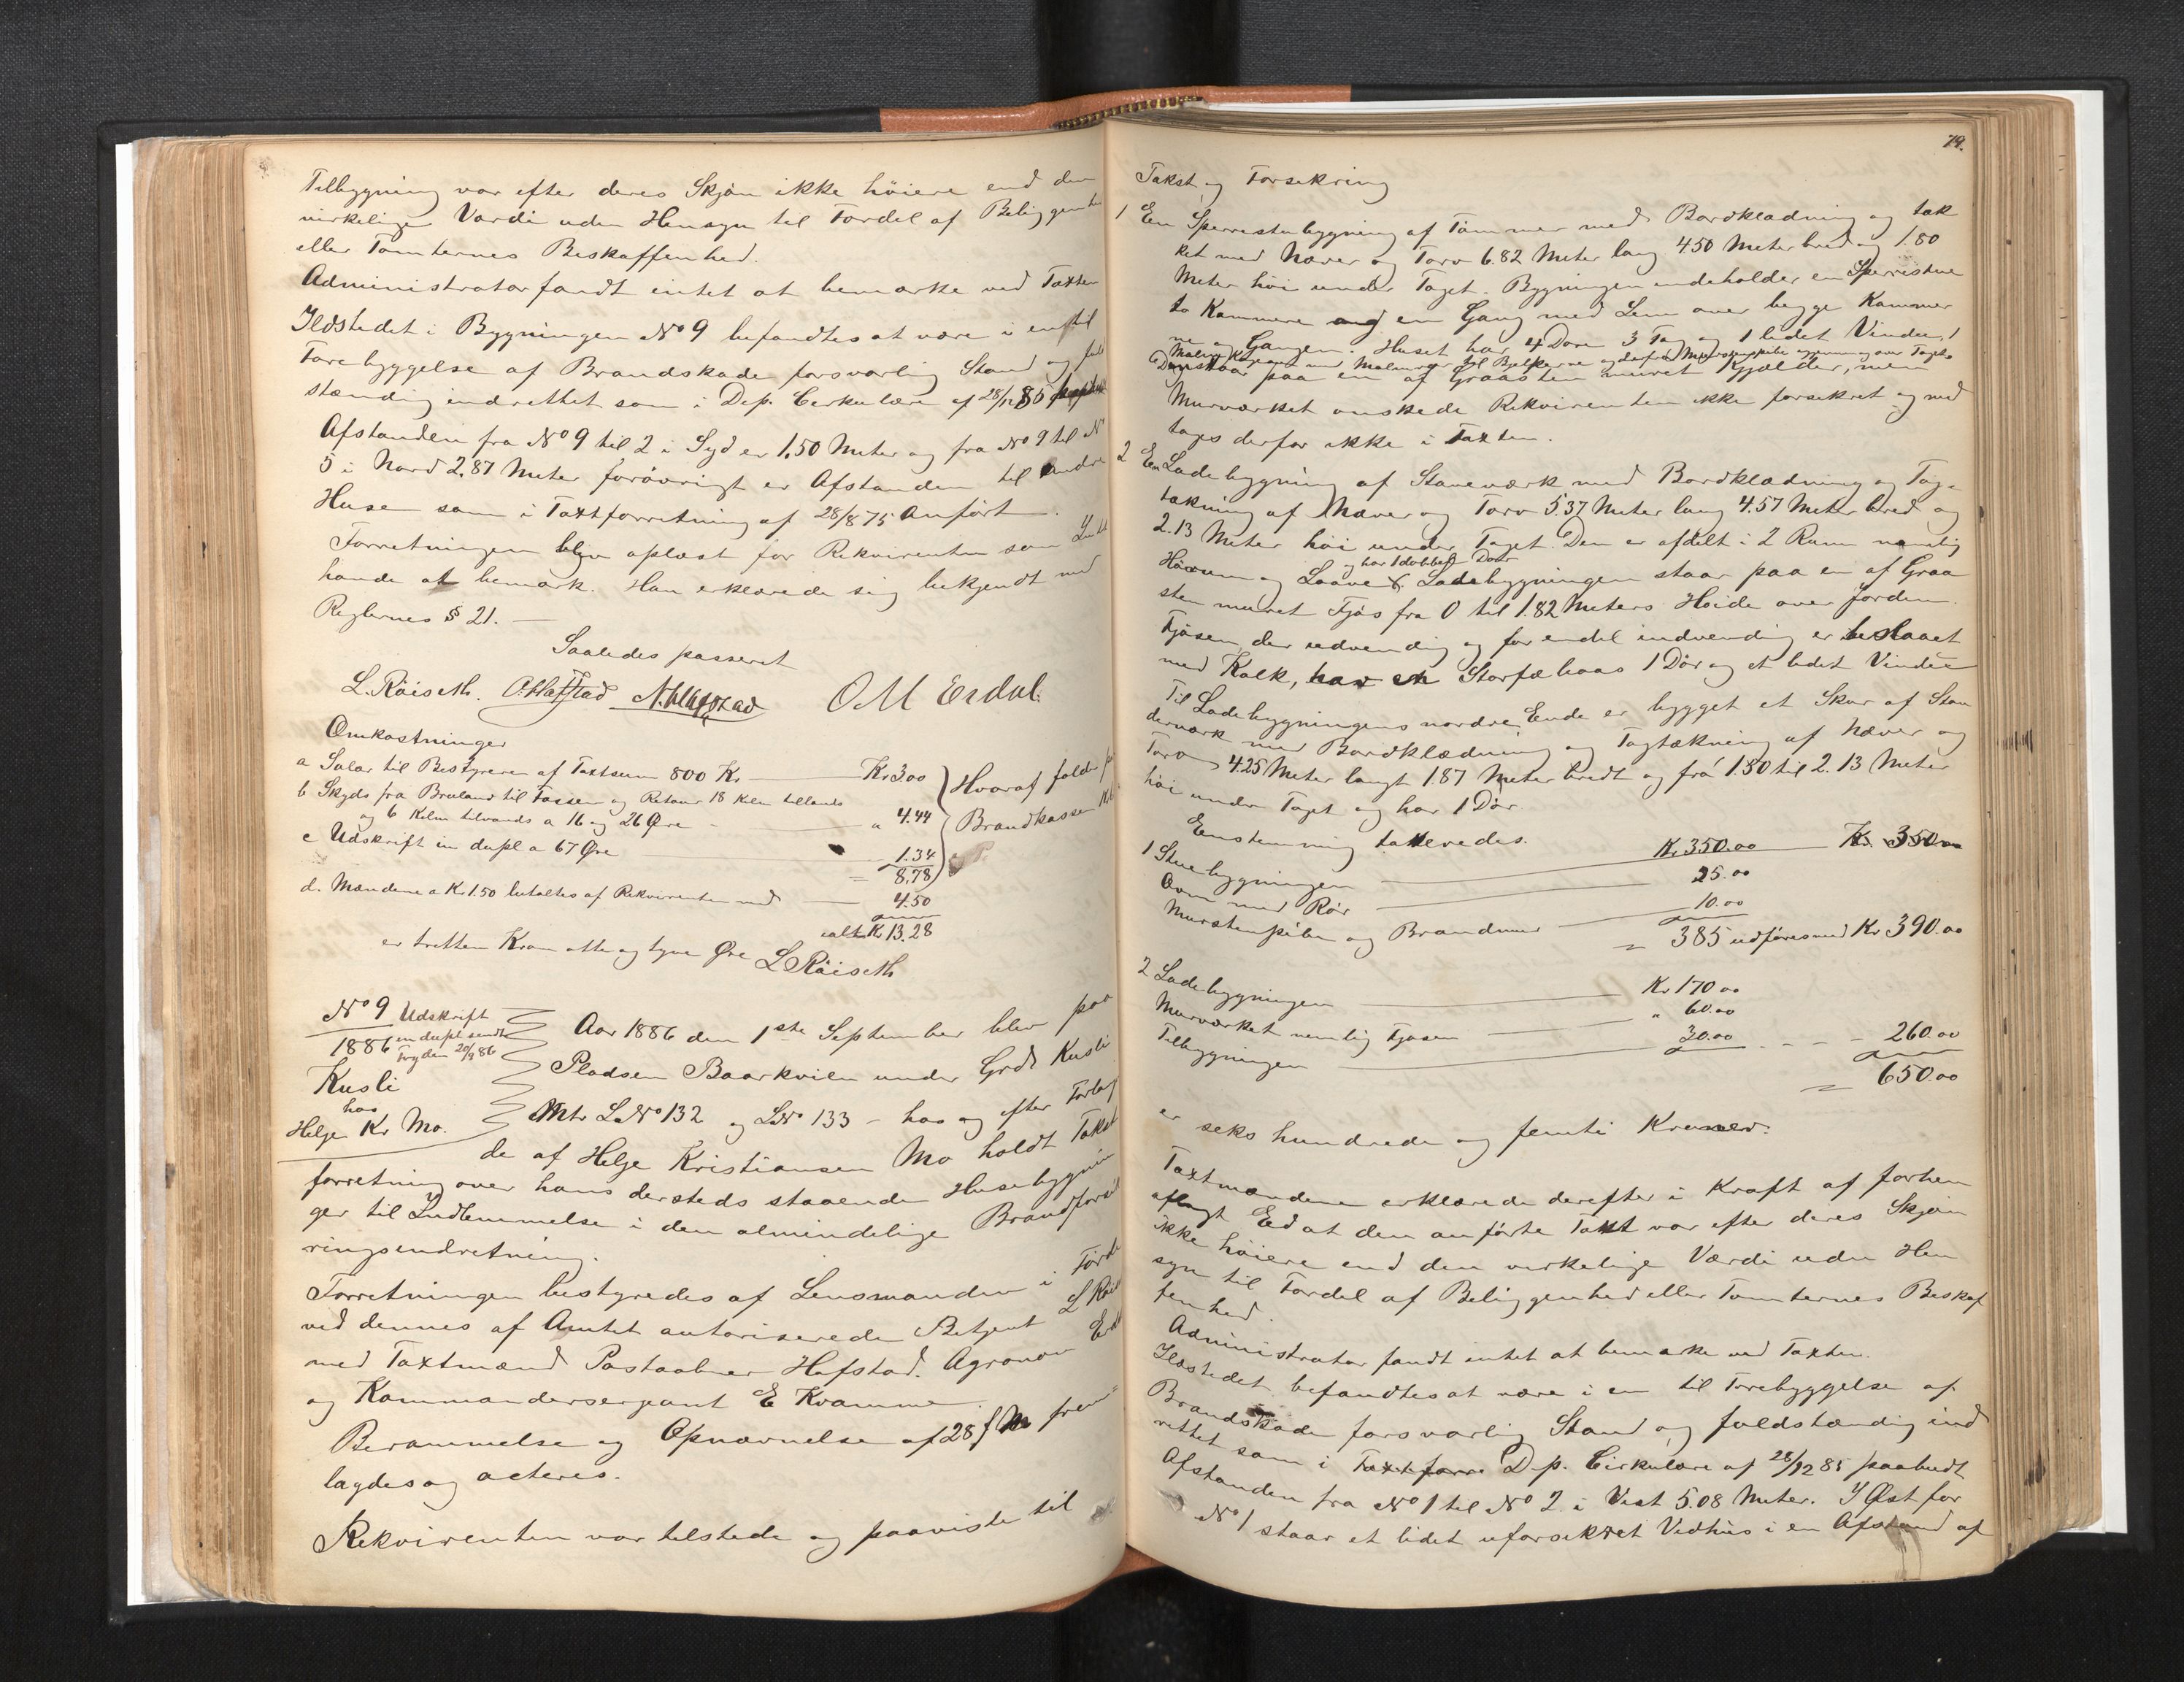 Tilbygning var efter deres Skjøn ikke høiere end den
virkelige Værdi uden Hensyn til Fordel af Beliggenhed
eller Tomternes Beskaffenhed.
Administrator fandt intet at bemærke ved Taxten
Ildstedet i Bygningen No 9 befandtes at være i en til
Forebyggelse af Brandskade forsvarlig Stand og fuld
stændig indrettet som i Dep. Cirkulære af 28/12 85
Afstanden fra No 9 til 2 i Syd er 1.50 Meter og fra No 9 til No
5 i Nord 2.87 Meter forøvrigt er Afstanden til andre
Huse som i Taxtforretning af 28/8 75 Anført.
Forretningen blev oplæst for Rekvirenten som Intet
havde at bemærk. Han erklærede sig bekjendt med
Reglernes § 21. —
Saaledes passeret
L. Röiseth. O. Hafstad N. Hafstad O M Erdal.
Omkostninger
a Salær til Bestyreren af Taxtsum 800 Kr — Kr 3 00
b Skyds fra Bruland til Fossen og Retour 18 Kilm tillands
og 6 Kilm tilvands a 16 og 26 Øre — " 4.44
Hvoraf falder paa
Brandkassen
c Udskrift in dupl a 67 Øre 1.34
= 8.78
d. Mændene a Kr 1.50 betaltes af Rekvirenten med — 4.50
ialt Kr 13.28
er tretten Kroner otte og tyve Øre L Röiseth
No 9 Udskrift
1886 in dupl sendt
Fogden 20/9 86
Kusli
hos
Helge Kr Mo.
Aar 1886 den 1ste September blev paa
Pladsen Baarkvilen under Grd Kusli
Mtr L No 132 og LNo 133 - hos og efter Forlag
de af Helge Kristiansen Mo holdt Takst
forretning over hans dersteds staaende Husebygnin
ger til Indlemmelse i den almindelige Brandforsik
ringsindretning.
Forretningen bestyredes af Lensmanden i Førde
ved dennes af Amtet autoriserede Betjent L Röiseth
med Taxtmænd Postaabner Hafstad. Agronom Erdal
og Kommandersergeant E Kvamme.
Berammelse og Opnævnelse af 28 f M frem=
lagdes og acteres.
Rekvirenten var tilstede og paaviste til
79.
Takst og Forsekring
1 En Sperrestubygning af Tømmer med Bordklædning og tæk
ket med Næver og Torv 6.82 Meter lang 4.50 Meter bred og 1.80
Meter høi under Taget. Bygningen indeholder en Sperrestue
to Kammere og en Gang med Lem over begge Kammer
ne og Gangen. Huset har 4 Døre 3 Fag og 1 lidet Vindue, 1
Den staar paa en af Graasten muret Kjælder, men
Murværket ønskede Rekvirenten ikke forsekret og med
toges derfor ikke i Taxten.
2 En Ladebygning af Staveværk med Bordklædning og Tag-
tækning af Næver og Torv 5.37 Meter lang 4.57 Meter bred og
2.13 Meter høi under Taget. Den er afdelt i 2 Rum nemlig
og har 1 dobbelt Dør
Hörum og Laave. Ladebygningen staar paa en af Graa
sten muret Fjøs fra 0 til 1.82 Meters Høide over Jorden.
Fjøsen, der udvendig og for endel indvendig er beslaaet
med Kalk, har en Storfæbaas 1 Dør og et lidet Vindue
Til Ladebygningens nordre Ende er bygget et Skur af Stan
derværk med Bordklædning og Tagtækning af Næver og
Torv 4.25 Meter langt 1.87 Meter bredt og fra 1.50 til 2.13 Meter
høi under Taget og har 1 Dør
Eenstemmig taxeredes.
1 Stuebygningen — Kr 350.00 — Kr 350.00
Ovn med Rør — 25.00
Murstenspibe og Brandmur — 10.00
= 385 udføres med Kr 390.00
2 Ladebygningen — Kr 170.00
Murværket nemlig Fjøsen — " 60.00
Tilbygningen — 30.00 - - - 260.00
= 650.00
er seks hundrede og femti Kroner.
Taxtmændene erklærede derefter i Kraft af forhen
aflagt Eed at den anførte Taxt var efter deres Skjøn
ikke høiere end den virkelige Værdi uden Hen
syn til Fordel af Beliggenhed eller Tomternes Beskaf
fenhed.
Administrator fandt intet at bemærke ved Taxten.
Ildstedet befandtes at være i en til Forebyggelse af
Brandskade forsvarlig Stand og fuldstændig ind
rettet som i Taxtforre Dep. Cirkulære af 28/12 85 paabudt
Afstanden fra No 1 til No 2 i Vest 5.08 Meter. I Øst for
No 1 staar et lidet uforsekret Vedhus i en Afstand af